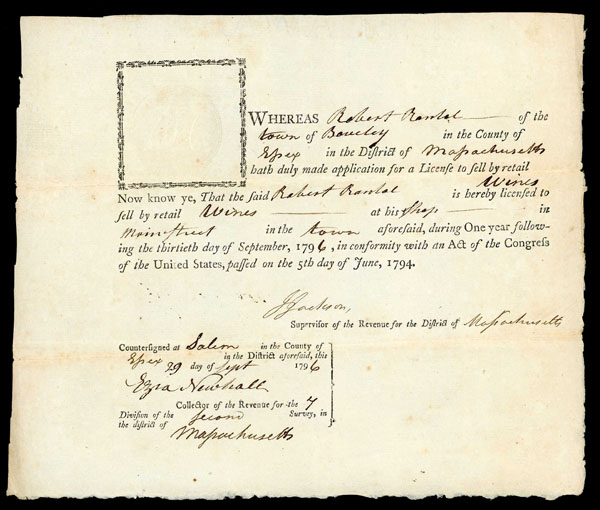 WHEREAS Robert Rantal of the
town of Beverley in the County of
Essex in the District of Massachusetts
hath duly made application for a License to sell by retail
Wines
Now know ye, That the said Robert Rantal is hereby licensed to
sell by retail Wines at his Shop in
Main Street in the town aforesaid, during One year follow-
ing the thirtieth day of September, 1796, in conformity with an Act of the Congress
of the United States, passed on the 5th day of June, 1794.
J Jackson,
Supervisor of the Revenue for the District of Massachusetts
Countersigned at Salem in the County of
Essex in the District aforesaid, this
29 day of Sept 1796
Ezra Newhall
Collector of the Revenue for the 7
Division of the second Survey, in
the district of
Massachusetts